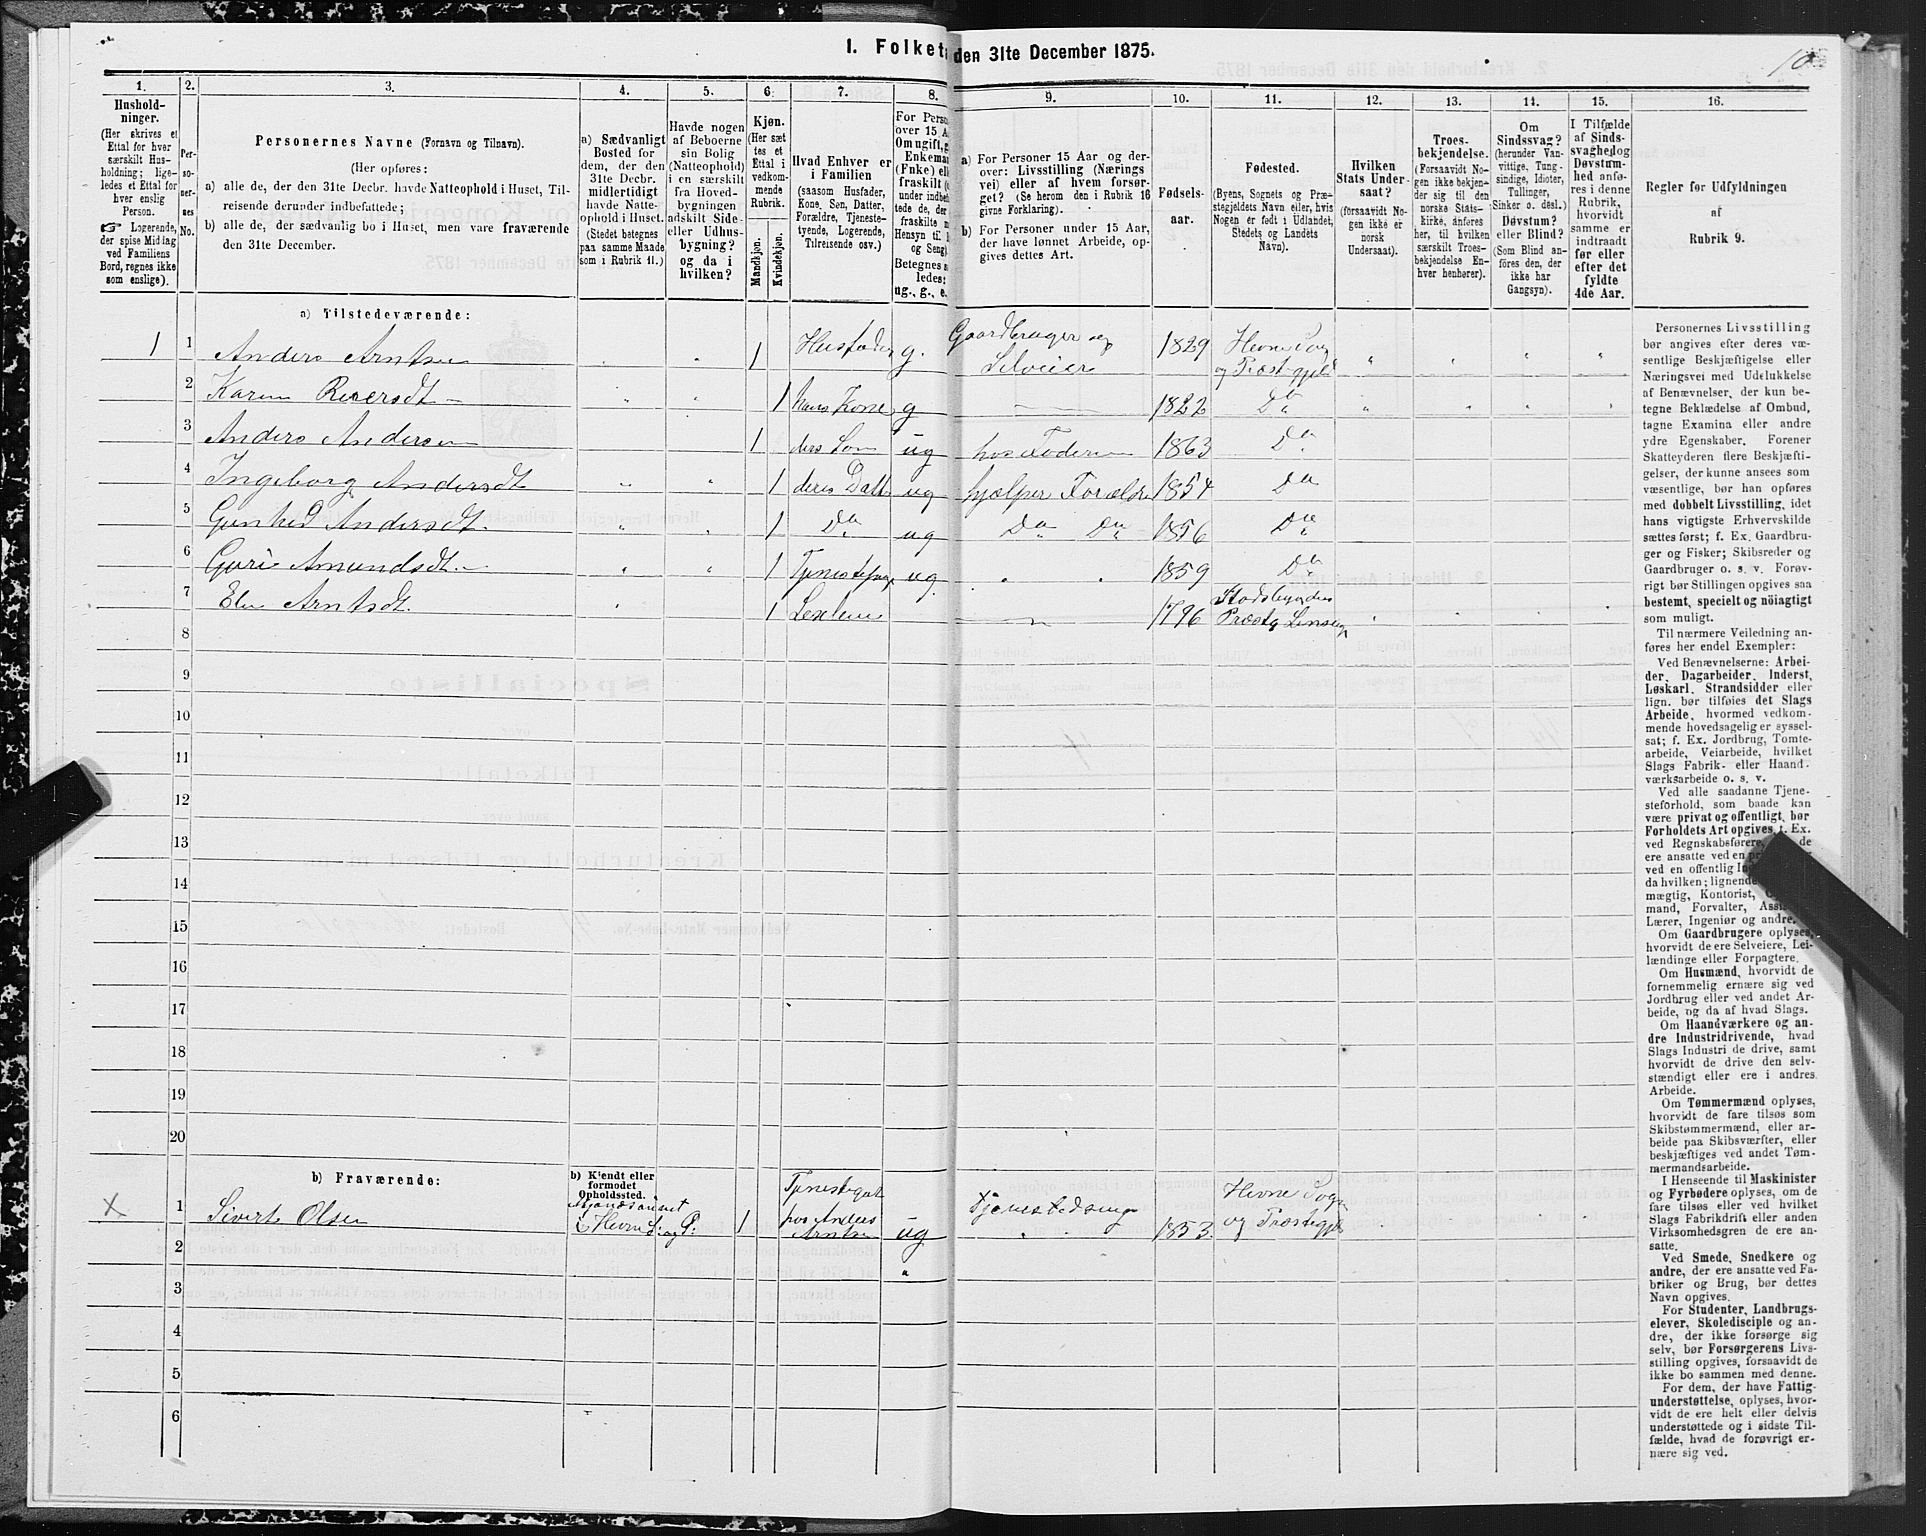 1. Folket den 31te December 1875.
10
1. 2. 3. 4. 5. 6. 7. 8. 9. 10. 11. 12. 13. 14. 15. 16.
Hushold-
ninger.
(Her skrives et
Ettal for hver
særskilt Hus-
holdning; lige-
ledes et Ettal for
hver enslig
Person.
☞ Logerende,
der spise Middag
ved Familiens
Bord, regnes ikke
som enslige).
Per-
so-
ner-
nes
No.
Personernes Navne (Fornavn og Tilnavn).
(Her opføres:
a) alle de, der den 31te Decbr. havde Natteophold i Huset, Til-
reisende derunder indbefattede;
b) alle de, der sædvanlig bo i Huset, men vare fraværende
den 31te December.
a) Sædvanligt
Bosted for
dem, der den
31te Decbr.
midlertidigt
havde Natte-
ophold i Huset.
(Stedet betegnes
paa samme Maade
som i Rubrik 11.)
Havde nogen
af Beboerne
sin Bolig
(Natteophold)
i en særskilt
fra Hoved-
bygningen
adskilt Side-
eller Udhus-
bygning?
og da i
hvilken?
Kjøn.
(Her sæt-
tes et
Ettal i
vedkom-
mende
Rubrik.
Mandkjøn.
Kvindekjøn.
Hvad Enhver er
i Familien
(saasom Husfader,
Kone, Søn, Datter,
Forældre, Tjeneste-
tyende, Logerende,
Tilreisende osv.)
For Perso
over 15 A
Om ugift, g
Enkema
(Fnke) ell
fraskilt (
under indbe
tede de, der
fraskilte
Hensyn til
og Seng).
Betegnes s
ledes:
ug., g., e.
a) For Personer 15 Aar og der-
over: Livsstilling (Nærings
vei) eller af hvem forsør-
get? (Se herom den i Rubrik 16
givne Forklaring).
b) For Personer under 15 Aar,
der have lønnet Arbeide, op-
gives dettes Art.
Fødsels-
aar.
Fødested.
(Byens, Sognets og Præ-
stegjeldets Navn eller, hvis
Nogen er født i Udlandet,
Stedets og Landets
Navn).
Hvilken
Stats Under-
saat?
(forsaavidt No-
gen ikke er
norsk
Undersaat).
Troes-
bekjendelse.
(Forsaavidt No-
gen ikke bekjen-
der sig til den
norske Stats-
kirke, anføres
her, til hvilken
særskilt Troes-
bekjendelse En-
hver henhører).
Om
Sindssvag?
(herunder Van-
vittige, Tung-
sindige, Idioter,
Tullinger,
Sinker o. desl.)
Døvstum?
eller Blind?
(Som Blind an-
føres den, der
ikke har
Gangsyn).
I Tilfælde
af Sinds-
svaghed og
Døvstum-
hed anfø-
res i denne
Rubrik,
hvorvidt
samme er
indtraadt
før eller
efter det
fyldte
4de Aar.
Regler for Udfyldningen
af
Rubrik 9.
a) Tilstedeværende:
1 1 Anders Arntsen " " 1 Husfader g. Gaardbruger og Selveier 1829 Hevne Sogn og Præstgjeld " " " "
2 Karen Reiersdt " " 1 hans Kone g — 1822 Do " " " "
3 Anders Andersen 1 ders Søn ug hos Foderen 1863 Do
4 Ingeborg Andersdt " " 1 deres Datt ug hjælper Forældre 1854 Do
5 Gunhild Andersdt. " " 1 Do ug Do Do 1856 Do
6 Guri Amundsdt. " " 1 ug. " " 1859 Do
7 Elen Arntsdt. " 1 — 1796 Stadsbygdens
8
9
10
11
12
13
14
15
16
17
18
19
20
b) Fraværende:
b) Kjendt eller
formodet
Opholdssted.
X 1 Sivert Olsen i Hevne S. og P: 1 Tjenestegut hos Anders Arntsen ug 1853. Hevne Sogn og Præstegjeld
2 "
3
4
5
6
Personernes Livsstilling
bør angives efter deres væ-
sentlige Beskjæftigelse eller
Næringsvei med Udelukkelse
af Benævnelser, der kun be-
tegne Beklædelse af Ombud,
tagne Examina eller andre
ydre Egenskaber. Forener
Skatteyderen flere Beskjæfti-
gelser, der kunne ansees som
væsentlige, bør han opføres
med dobbelt Livsstilling, idet
hans vigtigste Erhvervskilde
sættes først; f. Ex. Gaardbru-
ger og Fisker; Skibsreder og
Gaardbruger o. s. v. Forøv-
rigt bør Stillingen opgives saa
bestemt, specielt og nøiagtigt
som muligt.
Til nærmere Veiledning an-
føres her endel Exempler:
Ved Benævnelserne: Arbei-
der, Dagarbeider, Inderst,
Løskarl, Strandsidder eller
lign. bør tilføies det Slags
Arbeide, hvormed vedkom-
mende hovedsagelig er syssel-
sat; f. Ex. Jordbrug, Tomte-
arbeide, Veiarbeide, hvilket
Slags Fabrik- eller Haand-
værksarbeide o. s. v.
Ved alle saadanne Tjene-
steforhold, som baade kan
være privat og offentligt, bør
Forholdets Art opgives, f. Ex.
ved Regnskabsførere, de
ere ansatte ved en pri
ved en offentlig In
da hvilken; lignende
mægtig, Kontorist,
mand, Forvalter, Assi
Lærer, Ingeniør og andre.
Om Gaardbrugere oplyses,
hvorvidt de ere Selveiere, Lei-
lændinge eller Forpagtere.
Om Husmænd, hvorvidt de
fornemmelig ernære sig ved
Jordbrug eller ved andet Ar-
beide, og da af hvad Slags.
Om Haandværkere og an-
dre Industridrivende, hvad
Slags Industri de drive, samt
hvorvidt de drive den selv-
stændigt eller ere i andres
Arbeide.
Om Tømmermænd oplyses,
hvorvidt de fare tilsøs som
Skibstømmermænd, eller ar-
beide paa Skibsværfter, eller
beskjæftiges ved andet Tøm-
mermandsarbeide.
I Henseende til Maskinister
og Fyrbødere oplyses, om de
fare tilsøs eller ved hvilket
Slags Fabrikdrift eller anden
Virksomhedsgren de ere an-
satte.
Ved Smede, Snedkere og
andre, der ere ansatte ved Fa-
briker og Brug, bør dettes
Navn opgives.
For Studenter, Landbrugs-
elever, Skoledisciple og an-
dre, der ikke forsørge sig
selv, bør Forsørgerens Livs-
stilling opgives, forsaavidt de
ikke bo sammen med denne.
For dem, der have Fattig-
understøttelse, oplyses, hvor-
vidt de ere helt eller delvis
understøttede og i sidste Til-
fælde, hvad de forøvrigt er-
nære sig ved.